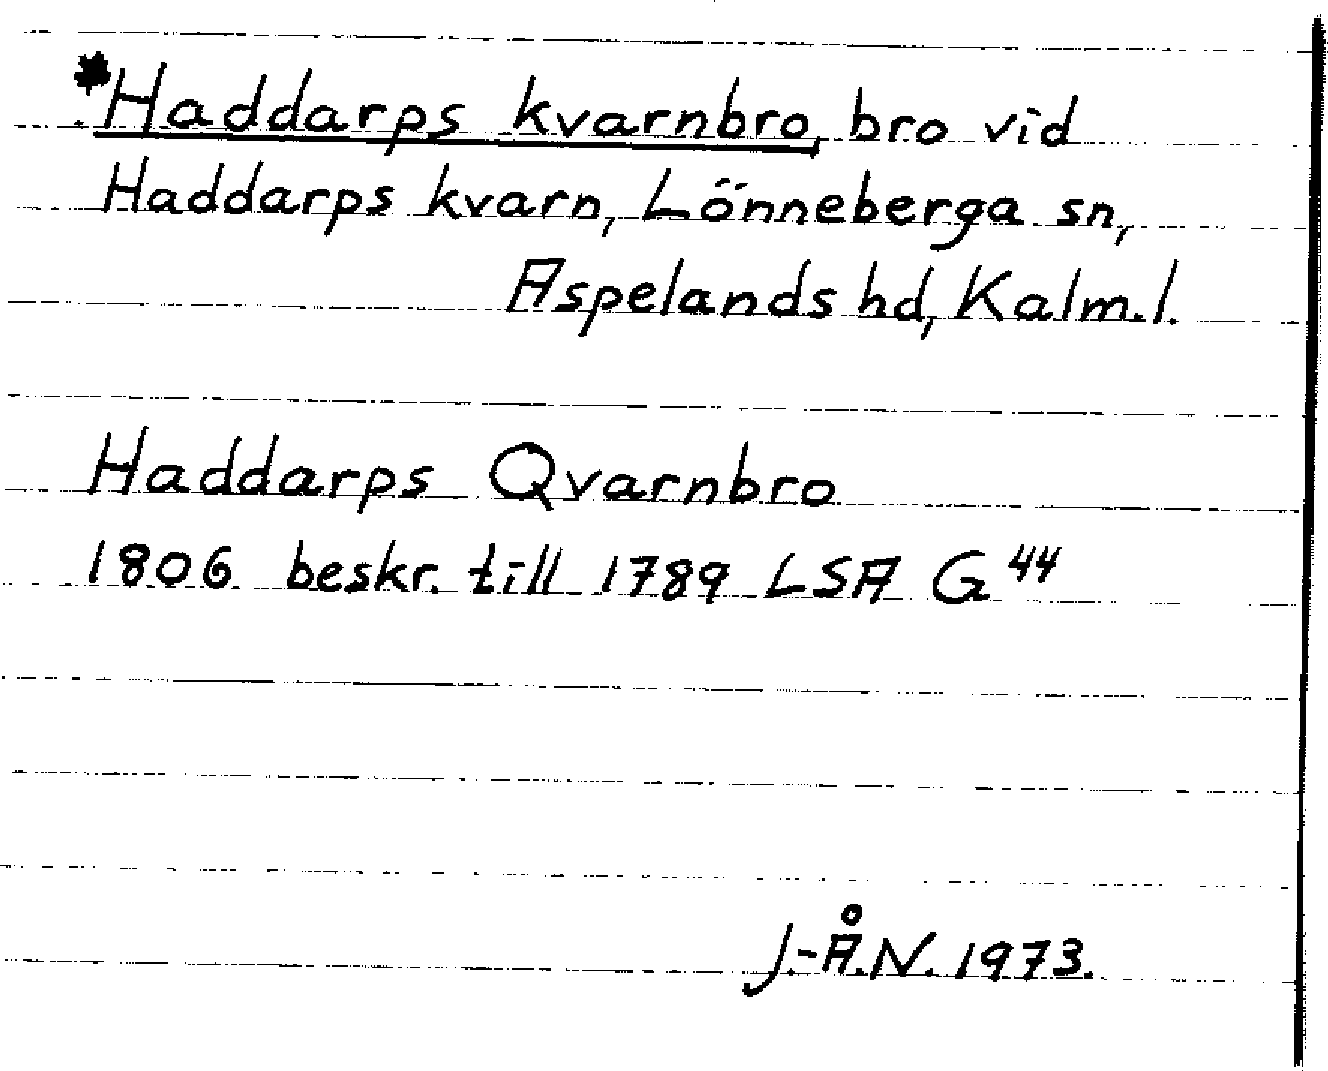 *Haddarps kvarnbro, bro vid
Haddarps kvarn, Lönneberga sn,
Aspelands hd, Kalm. l.
Haddarps Qvarnbro
1806 beskr. till 1789 LSA G 44
J.-Å.N. 1973.